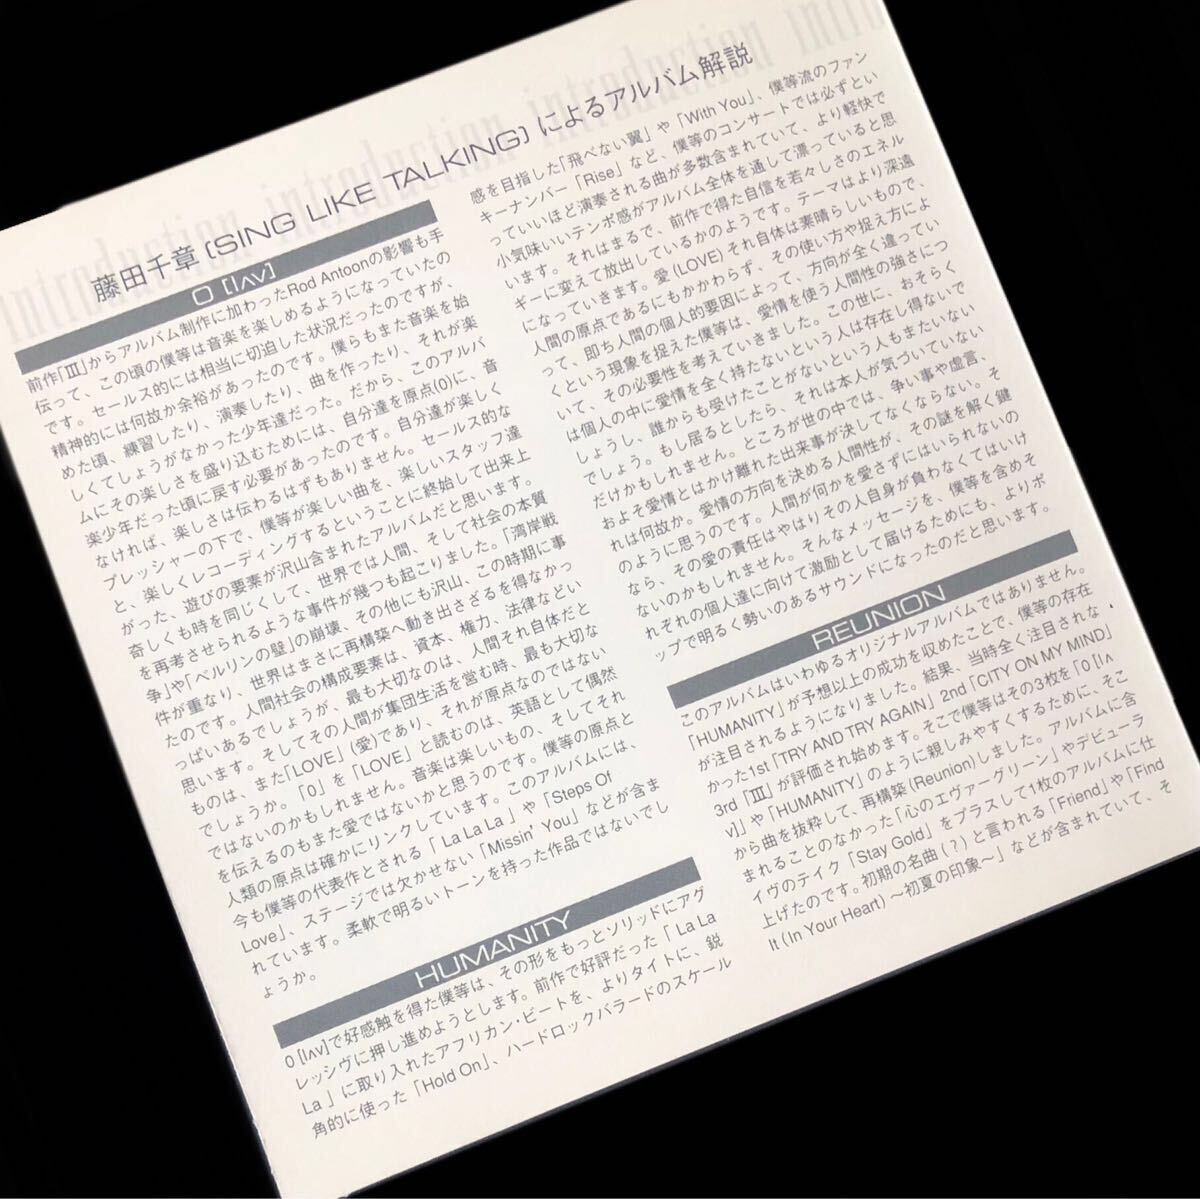 introduction introduction introduction intro
藤田千章〔SING LIKE TALKING〕によるアルバム解説
0 [lʌv]
前作「Ⅲ」からアルバム制作に加わったRod Antoonの影響も手
伝って、この頃の僕等は音楽を楽しめるようになっていたの
です。セールス的には相当に切迫した状況だったのですが、
精神的には何故か余裕があったのです。僕らもまた音楽を始
めた頃、練習したり、演奏したり、曲を作ったり、それが楽
しくてしょうがなかった少年達だった。だから、このアルバ
ムにその楽しさを盛り込むためには、自分達を原点(0)に、音
楽少年だった頃に戻す必要があったのです。自分達が楽しく
なければ、楽しさは伝わるはずもありません。セールス的な
プレッシャーの下で、僕等が楽しい曲を、楽しいスタッフ達
と、楽しくレコーディングするということに終始して出来上
がった、遊びの要素が沢山含まれたアルバムだと思います。
奇しくも時を同じくして、世界では人間、そして社会の本質
を再考させられるような事件が幾つも起こりました。「湾岸戦
争」や「ベルリンの壁」の崩壊、その他にも沢山、この時期に事
件が重なり、世界はまさに再構築へ動き出さざるを得なかっ
たのです。人間社会の構成要素は、資本、権力、法律などい
っぱいあるでしょうが、最も大切なのは、人間それ自体だと
思います。そしてその人間が集団生活を営む時、最も大切な
ものは、また「LOVE」(愛)であり、それが原点なのではない
でしょうか。「0」を「LOVE」と読むのは、英語として偶然
ではないのかもしれません。音楽は楽しいもの、そしてそれ
を伝えるのもまた愛ではないかと思うのです。僕等の原点と
人類の原点は確かにリンクしています。このアルバムには、
今も僕等の代表作とされる「La La La」や「Steps Of
Love」、ステージでは欠かせない「Missin' You」などが含ま
れています。柔軟で明るいトーンを持った作品ではないでし
ょうか。
HUMANITY
0 [lʌv]で好感触を得た僕等は、その形をもっとソリッドにアグ
レッシヴに押し進めようとします。前作で好評だった「La La
La」に取り入れたアフリカン・ビートを、よりタイトに、鋭
角的に使った「Hold On」、ハードロックバラードのスケール
感を目指した「飛べない翼」や「With You」、僕等流のファン
キーナンバー「Rise」など、僕等のコンサートでは必ずとい
っていいほど演奏される曲が多数含まれていて、より軽快で
小気味いいテンポ感がアルバム全体を通して漂っていると思
います。それはまるで、前作で得た自信を若々しさのエネル
ギーに変えて放出しているかのようです。テーマはより深遠
になっていきます。愛(LOVE)それ自体は素晴らしいもので、
人間の原点であるにもかかわらず、その使い方や捉え方によ
って、即ち人間の個人的要因によって、方向が全く違ってい
くという現象を捉えた僕等は、愛情を使う人間性の強さにつ
いて、その必要性を考えていきました。この世に、おそらく
は個人の中に愛情を全く持たないという人は存在し得ないで
しょうし、誰からも受けたことがないという人もまたいない
でしょう。もし居るとしたら、それは本人が気づいていない
だけかもしれません。ところが世の中では、争い事や虚言、
およそ愛情とはかけ離れた出来事が決してなくならない。そ
れは何故か。愛情の方向を決める人間性が、その謎を解く鍵
のように思うのです。人間が何かを愛さずにはいられないの
なら、その愛の責任はやはりその人自身が負わなくてはいけ
ないのかもしれません。そんなメッセージを、僕等を含めそ
れぞれの個人達に向けて激励として届けるためにも、よりポ
ップで明るく勢いのあるサウンドになったのだと思います。
REUNION
このアルバムはいわゆるオリジナルアルバムではありません。
「HUMANITY」が予想以上の成功を収めたことで、僕等の存在
が注目されるようになりました。結果、当時全く注目されな
かった1st「TRY AND TRY AGAIN」2nd「CITY ON MY MIND」
3rd「Ⅲ」が評価され始めます。そこで僕等はその3枚を「0 [lʌ
v]」や「HUMANITY」のように親しみやすくするために、そこ
から曲を抜粋して、再構築(Reunion)しました。アルバムに含
まれることのなかった「心のエヴァーグリーン」やデビューラ
イヴのテイク「Stay Gold」をプラスして1枚のアルバムに仕
上げたのです。初期の名曲(？)と言われる「Friend」や「Find
It (In Your Heart) ～初夏の印象～」などが含まれていて、そ